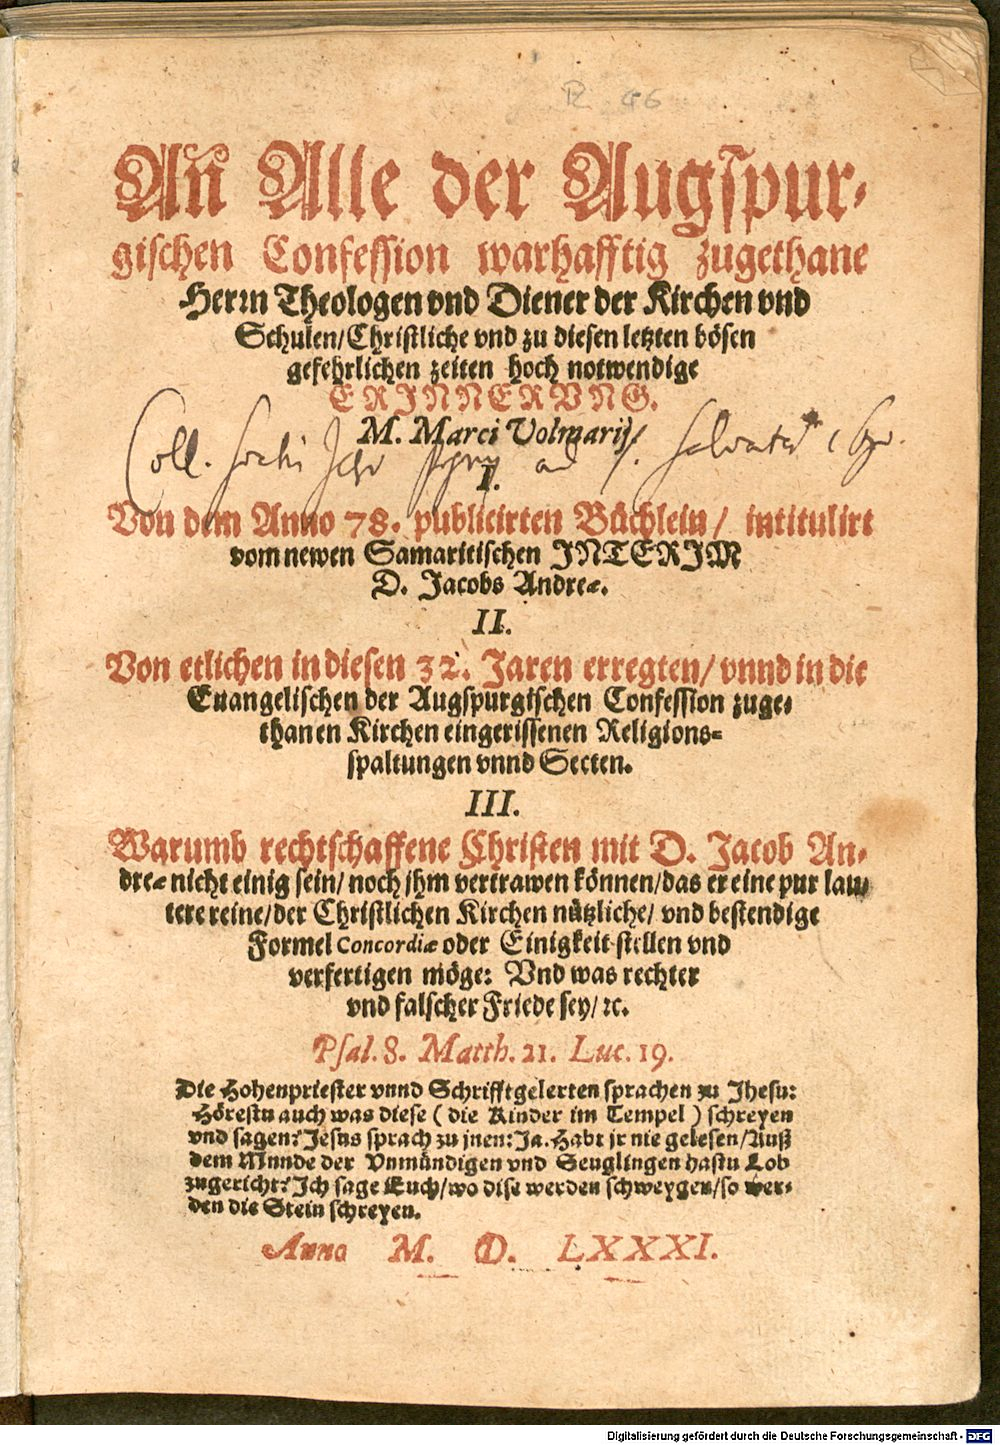 An Alle der Augſpur-
giſchen Confeſſion warhafftig zugethane
Herrn Theologen vnd Diener der Kirchen vnd
Schulen/Chriſtliche vnd zu dieſen letzten böſen
gefehrlichen zeiten hoch notwendige
ERINNERVNG.
M. Marci Volmarij/
Coll. ad
I.
Von dem Anno 78. publicirten Büchlein/ intitulirt
vom newen Samaritiſchen INTERIM
D. Jacobs Andreæ.
II.
Von etlichen in dieſen 32. Jaren erregten/ vnnd in die
Euangeliſchen der Augſpurgiſchen Confeſſion zuge-
thanen Kirchen eingeriſſenen Religions-
ſpaltungen vnnd Secten.
III.
Warumb rechtſchaffene Chriſten mit D. Jacob An-
dreæ nicht einig ſein/ noch jhm vertrawen können/das er eine pur lau-
tere reine/der Chriſtlichen Kirchen nützliche/ vnd beſtendige
Formel Concordiæ oder Einigkeit ſtellen vnd
verfertigen möge: Vnd was rechter
vnd falſcher Friede ſey/ ꝛc.
Pſal. 8. Matth. 21. Luc. 19.
Die Hohenprieſter vnnd Schrifftgelerten ſprachen zu Jheſu:
Höreſtu auch was dieſe ( die Kinder im Tempel ) ſchreyen
vnd ſagen? Jeſus ſprach zu jnen: Ja. Habt jr nie geleſen/Auß
dem Munde der Vnmündigen vnd Seuglingen haſtu Lob
zugericht? Ich ſage Euch/wo diſe werden ſchweygen/ſo wer-
den die Stein ſchreyen.
Anno M. D. LXXXI.
Digitalisierung gefördert durch die Deutsche Forschungsgemeinschaft - DFG